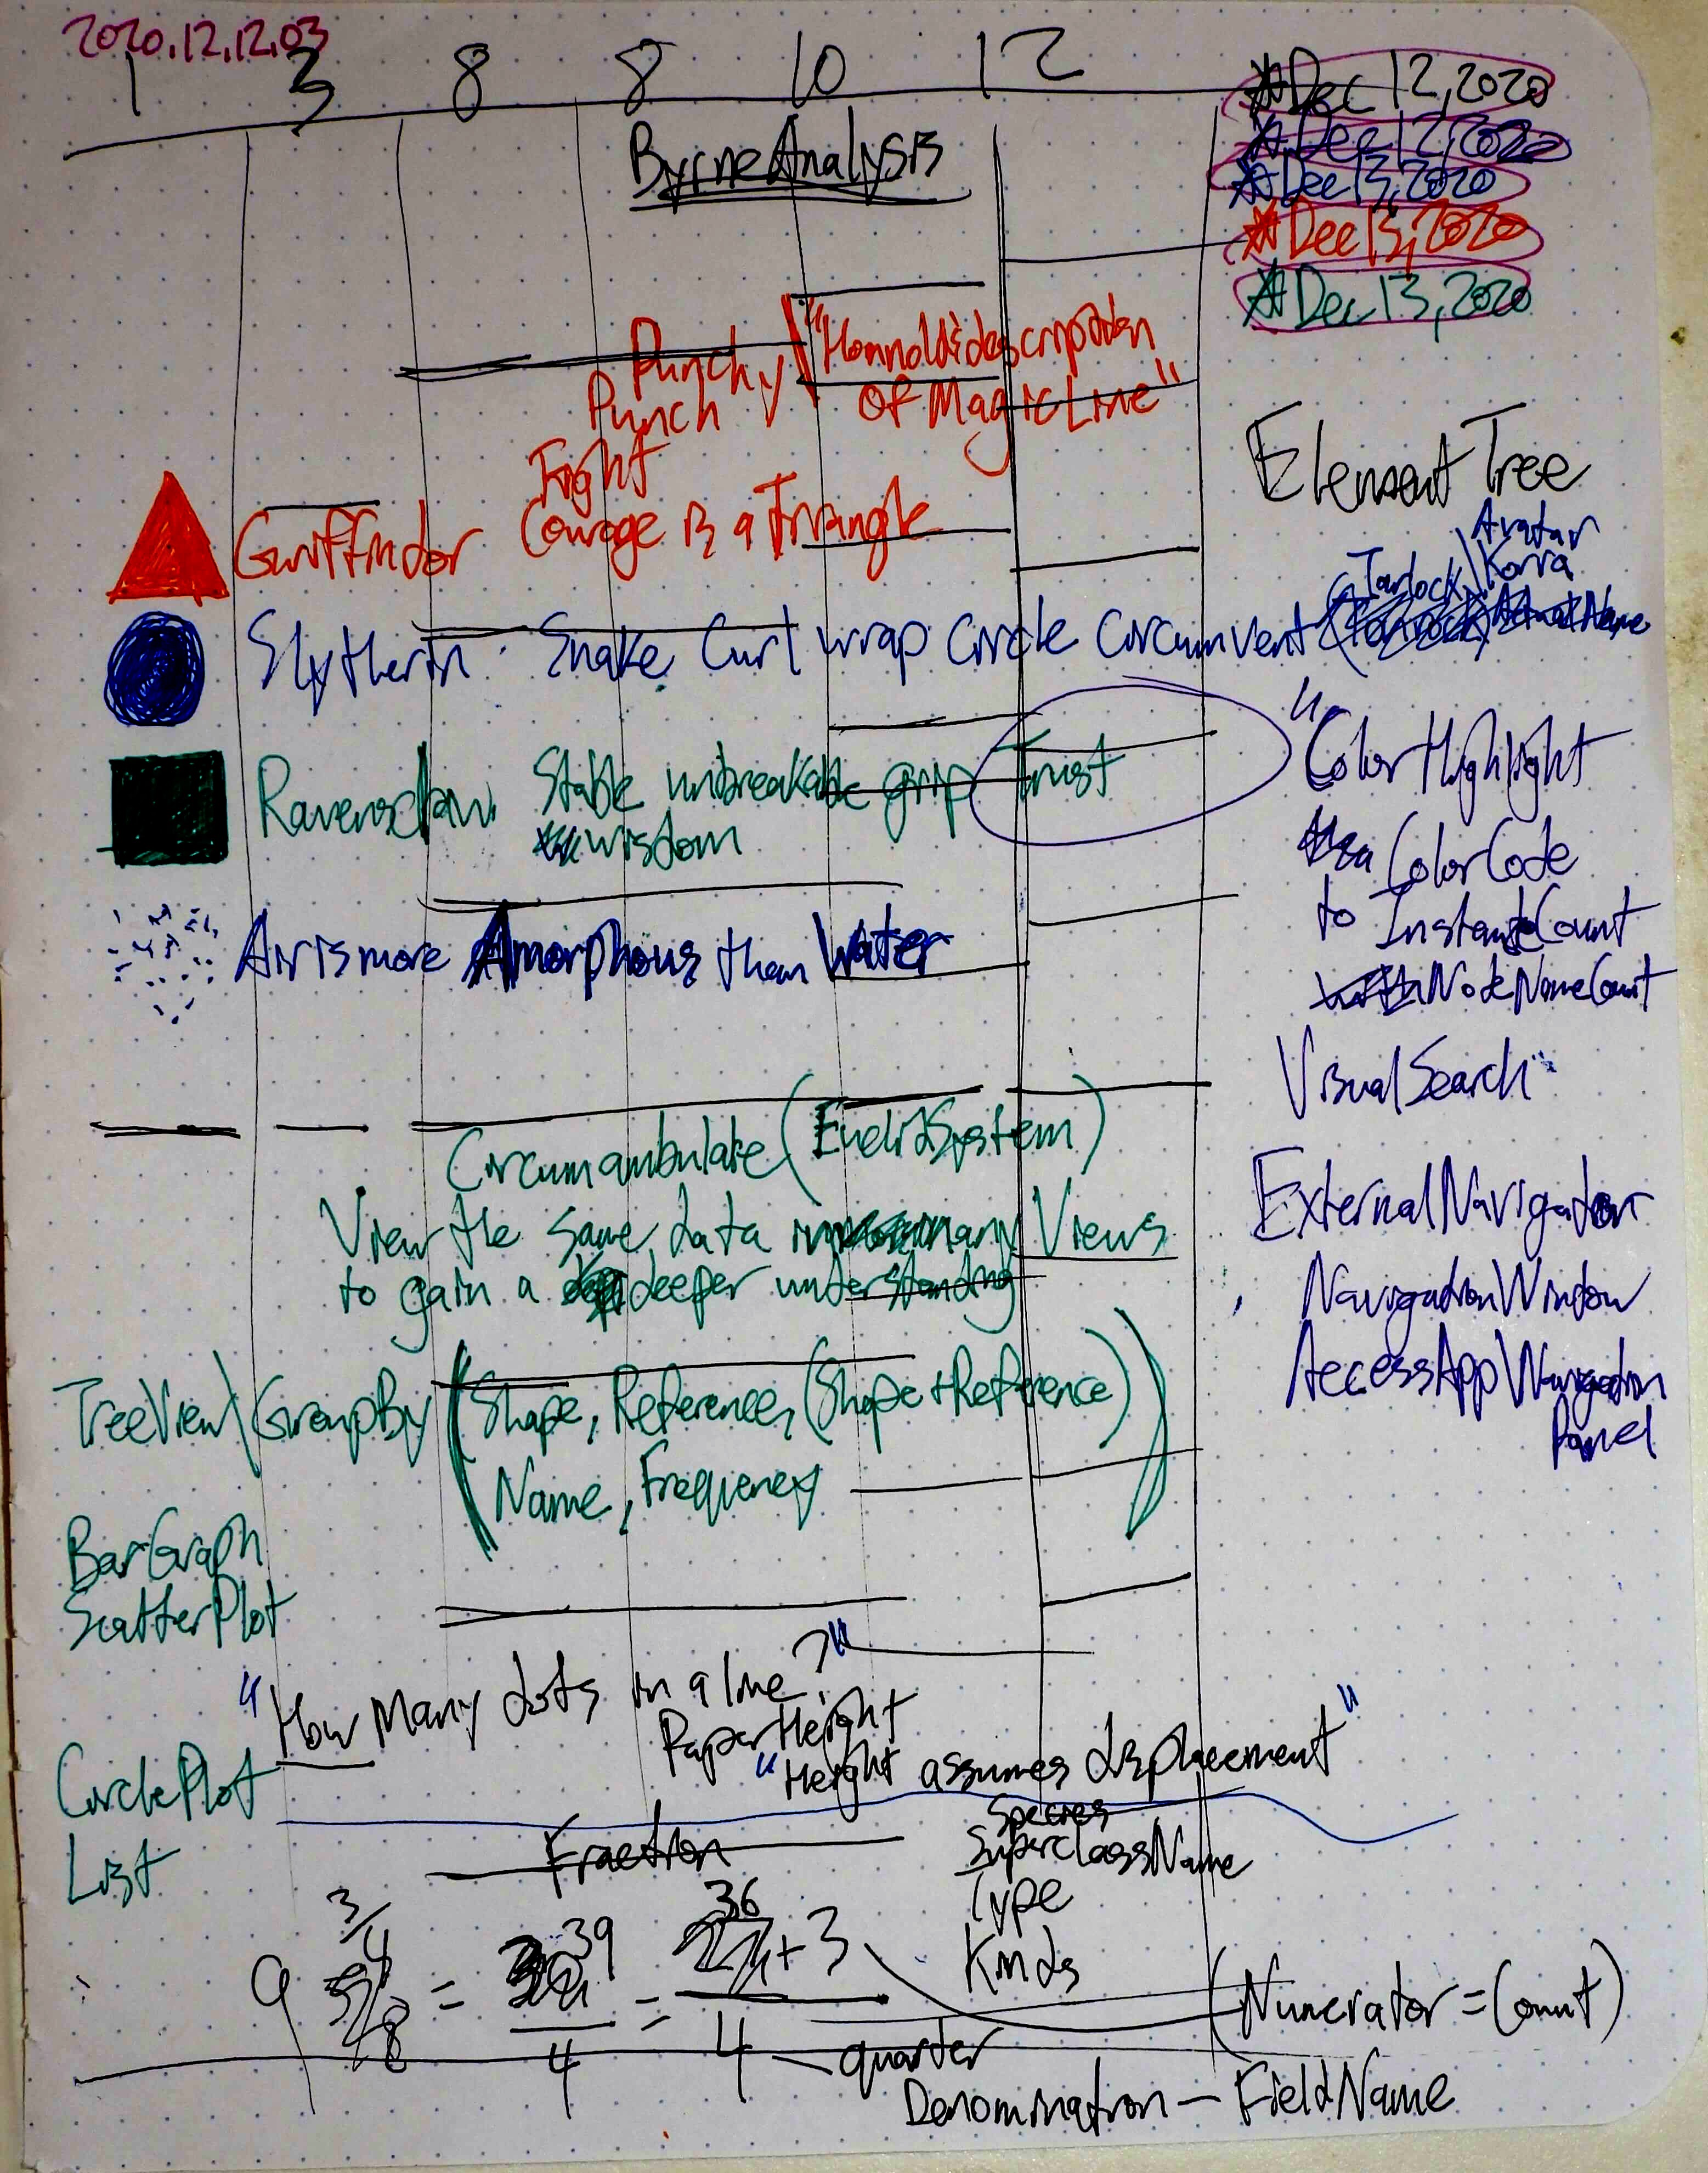 2020.12.12.03
1 3 8 8 10 12
ByrneAnalysis
*Dec 12, 2020
*Dec 12, 2020
*Dec 13, 2020
*Dec 13, 2020
*Dec 13, 2020
Punchy
Punch
of MagicLine"
Fight
Courage is a Triangle
Element Tree
Slytherin: Snake Curl wrap Circle Circumvent
Tarlock\Avatar
Korra
Stable unbreakable grip Trust
wisdom
Air is more Amorphous than Water
"ColorHighlight
ColorCode
to InstanceCount
NodeNameCount
VisualSearch"
Circumambulate (EuclidSystem)
View the same data many Views
to gain a deeper understanding
ExternalNavigator
NavigationWindow
AccessApp\Navigation
Panel
TreeView\GroupBy (Shape, Reference, (Shape+Reference)
Name, Frequency)
BarGraph
ScatterPlot
"How Many dots in a line?"
PaperHeight
"Height assumes displacement"
CirclePlot
List
Fraction
Species
SuperclassName
Type
Kinds
9 3/4 = 39/4 = 36 + 3
4
quarter
(Numerator = Count)
Denomination - FieldName